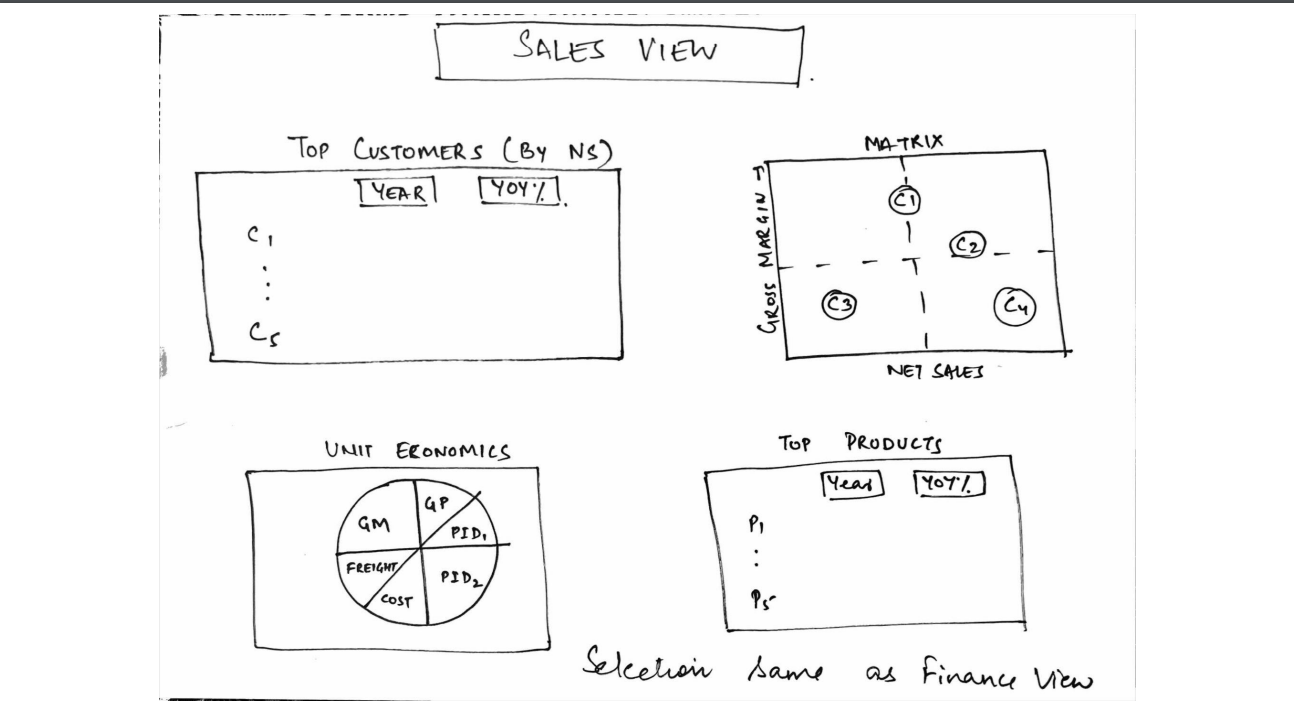 SALES VIEW
TOP CUSTOMERS (BY NS)
YEAR YOY%
C1
C5
MATRIX
GROSS MARGIN →
C1
C2
C3
C4
NET SALES
UNIT ECONOMICS
GM
GP
PID1
FREIGHT
PID2
COST
TOP PRODUCTS
Year YOY%
P1
P5
Selection same as Finance View